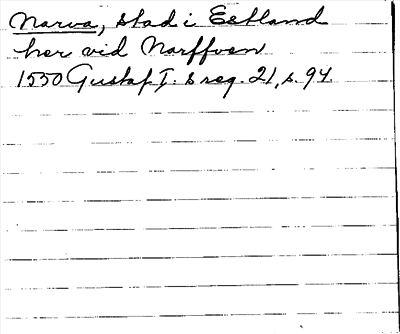 Narva, stad i Estland
her vid Narffven
1550 Gustaf I. s reg. 21, s. 94.